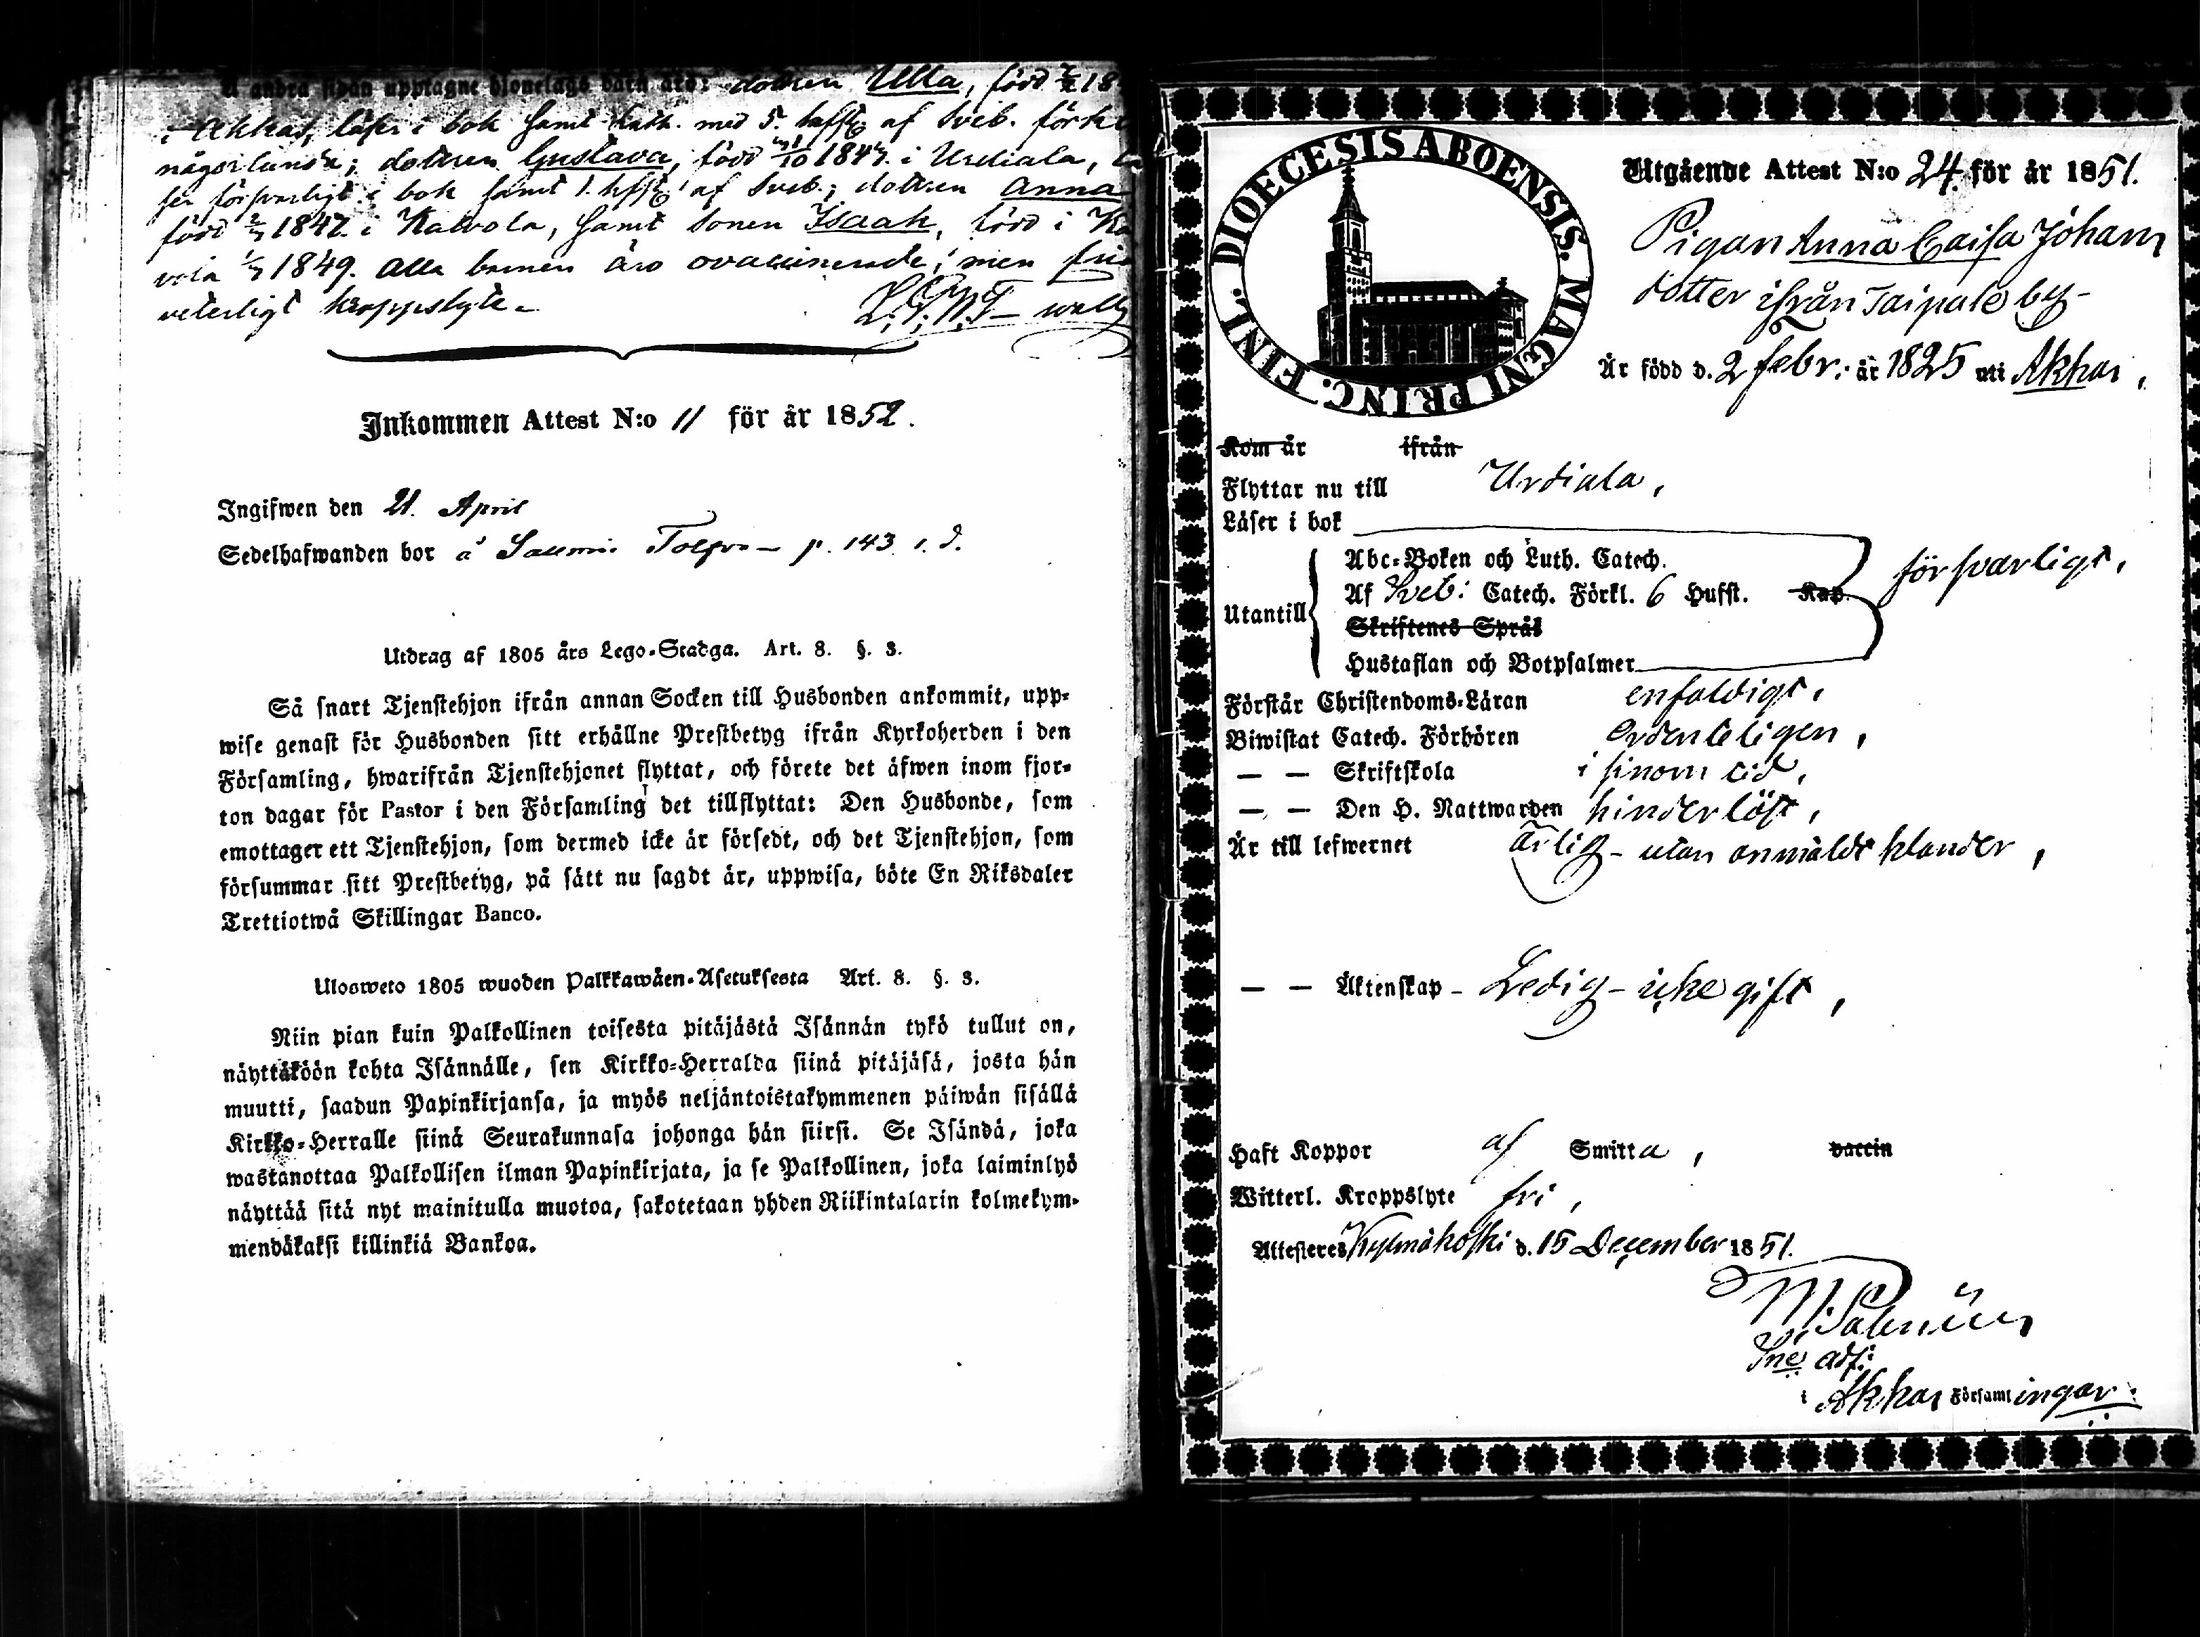 å andra sidan upptagne hjonelags barn äro: dottren Ulla, född 18
i Akkas, läser i bok samt Kath. med 5. hufst. af Sveb. förkl
någorlunda; dottren Gustava, född 1844 i Urdiala, lä
ser försvarligt i bok samt 1. hfst. af Sveb.; dottren Anna
född 1847 i Kalvola, samt sonen Isaak, född i Ka
vola 1849. Alla barnen äro ovaccinerade, men fria
veterligt kroppslyte.
Inkommen Attest N:o 11 för år 1852.
Ingifwen den 21. April
Sedelhafwanden bor å p. 143 i. d.
Utdrag af 1805 års Lego-Stadga. Art. 8. §. 3.
Så snart Tjenstehjon ifrån annan Socken till Husbonden ankommit, upp-
wise genast för Husbonden sitt erhållne Prestbetyg ifrån Kyrkoherden i den
Församling, hwarifrån Tjenstehjonet flyttat, och förete det äfwen inom fjor-
ton dagar för Pastor i den Församling det tillflyttat: Den Husbonde, som
emottager ett Tjenstehjon, som dermed icke är försedt, och det Tjenstehjon, som
försummar sitt Prestbetyg, på sätt nu sagdt är, uppwisa, böte En Riksdaler
Trettiotwå Skillingar Banco.
Ulosweto 1805 wuoden Palkkawäen-Asetuksesta Art. 8. §. 3.
Niin pian kuin Palkollinen toisesta pitäjästä Isännän tykö tullut on,
näyttäköön kohta Isännälle, sen Kirkko-Herralda siinä pitäjäsä, josta hän
muutti, saadun Papinkirjansa, ja myös neljäntoistakymmenen päiwän sisällä
Kirkko-Herralle siinä Seurakunnasa johonga hän siirsi. Se Isändä, joka
wastanottaa Palkollisen ilman Papinkirjata, ja se Palkollinen, joka laiminlyö
näyttää sitä nyt mainitulla muotoa, sakotetaan yhden Riikintalarin kolmekym-
mendäkaksi killinkiä Bankoa.
DIOECESIS ABOENSIS. MAGNI PRINC. FINL.
Utgående Attest N:o 24 för år 1851.
Pigan Anna Caisa Johans
dotter ifrån Taipale by-
Är född d. 2 febr: år 1825 uti Akkas,
Kom år ifrån
Flyttar nu till Urdiala,
Läser i bok
Utantill
Abc-Boken och Luth. Catech.
Af Sveb: Catech. Förkl. 6 Hufst. Kap.
Skriftenes Språk
Hustaflan och Botpsalmer
försvarligt,
Förstår Christendoms-Läran enfaldigt,
Biwistat Catech. Förhören Ordenteligen,
— — Skriftskola i sinom tid,
— — Den H. Nattwarden hinderlöst,
Är till lefwernet ärlig - utan anmäldt klander,
— — Äktenskap - Ledig - icke gift,
Haft Koppor af Smitta, vaccin
Witterl. Kroppslyte fri,
Attesteres Kylmäkoski d. 15 December 1851.
adj:
i Akkas Församlingar.